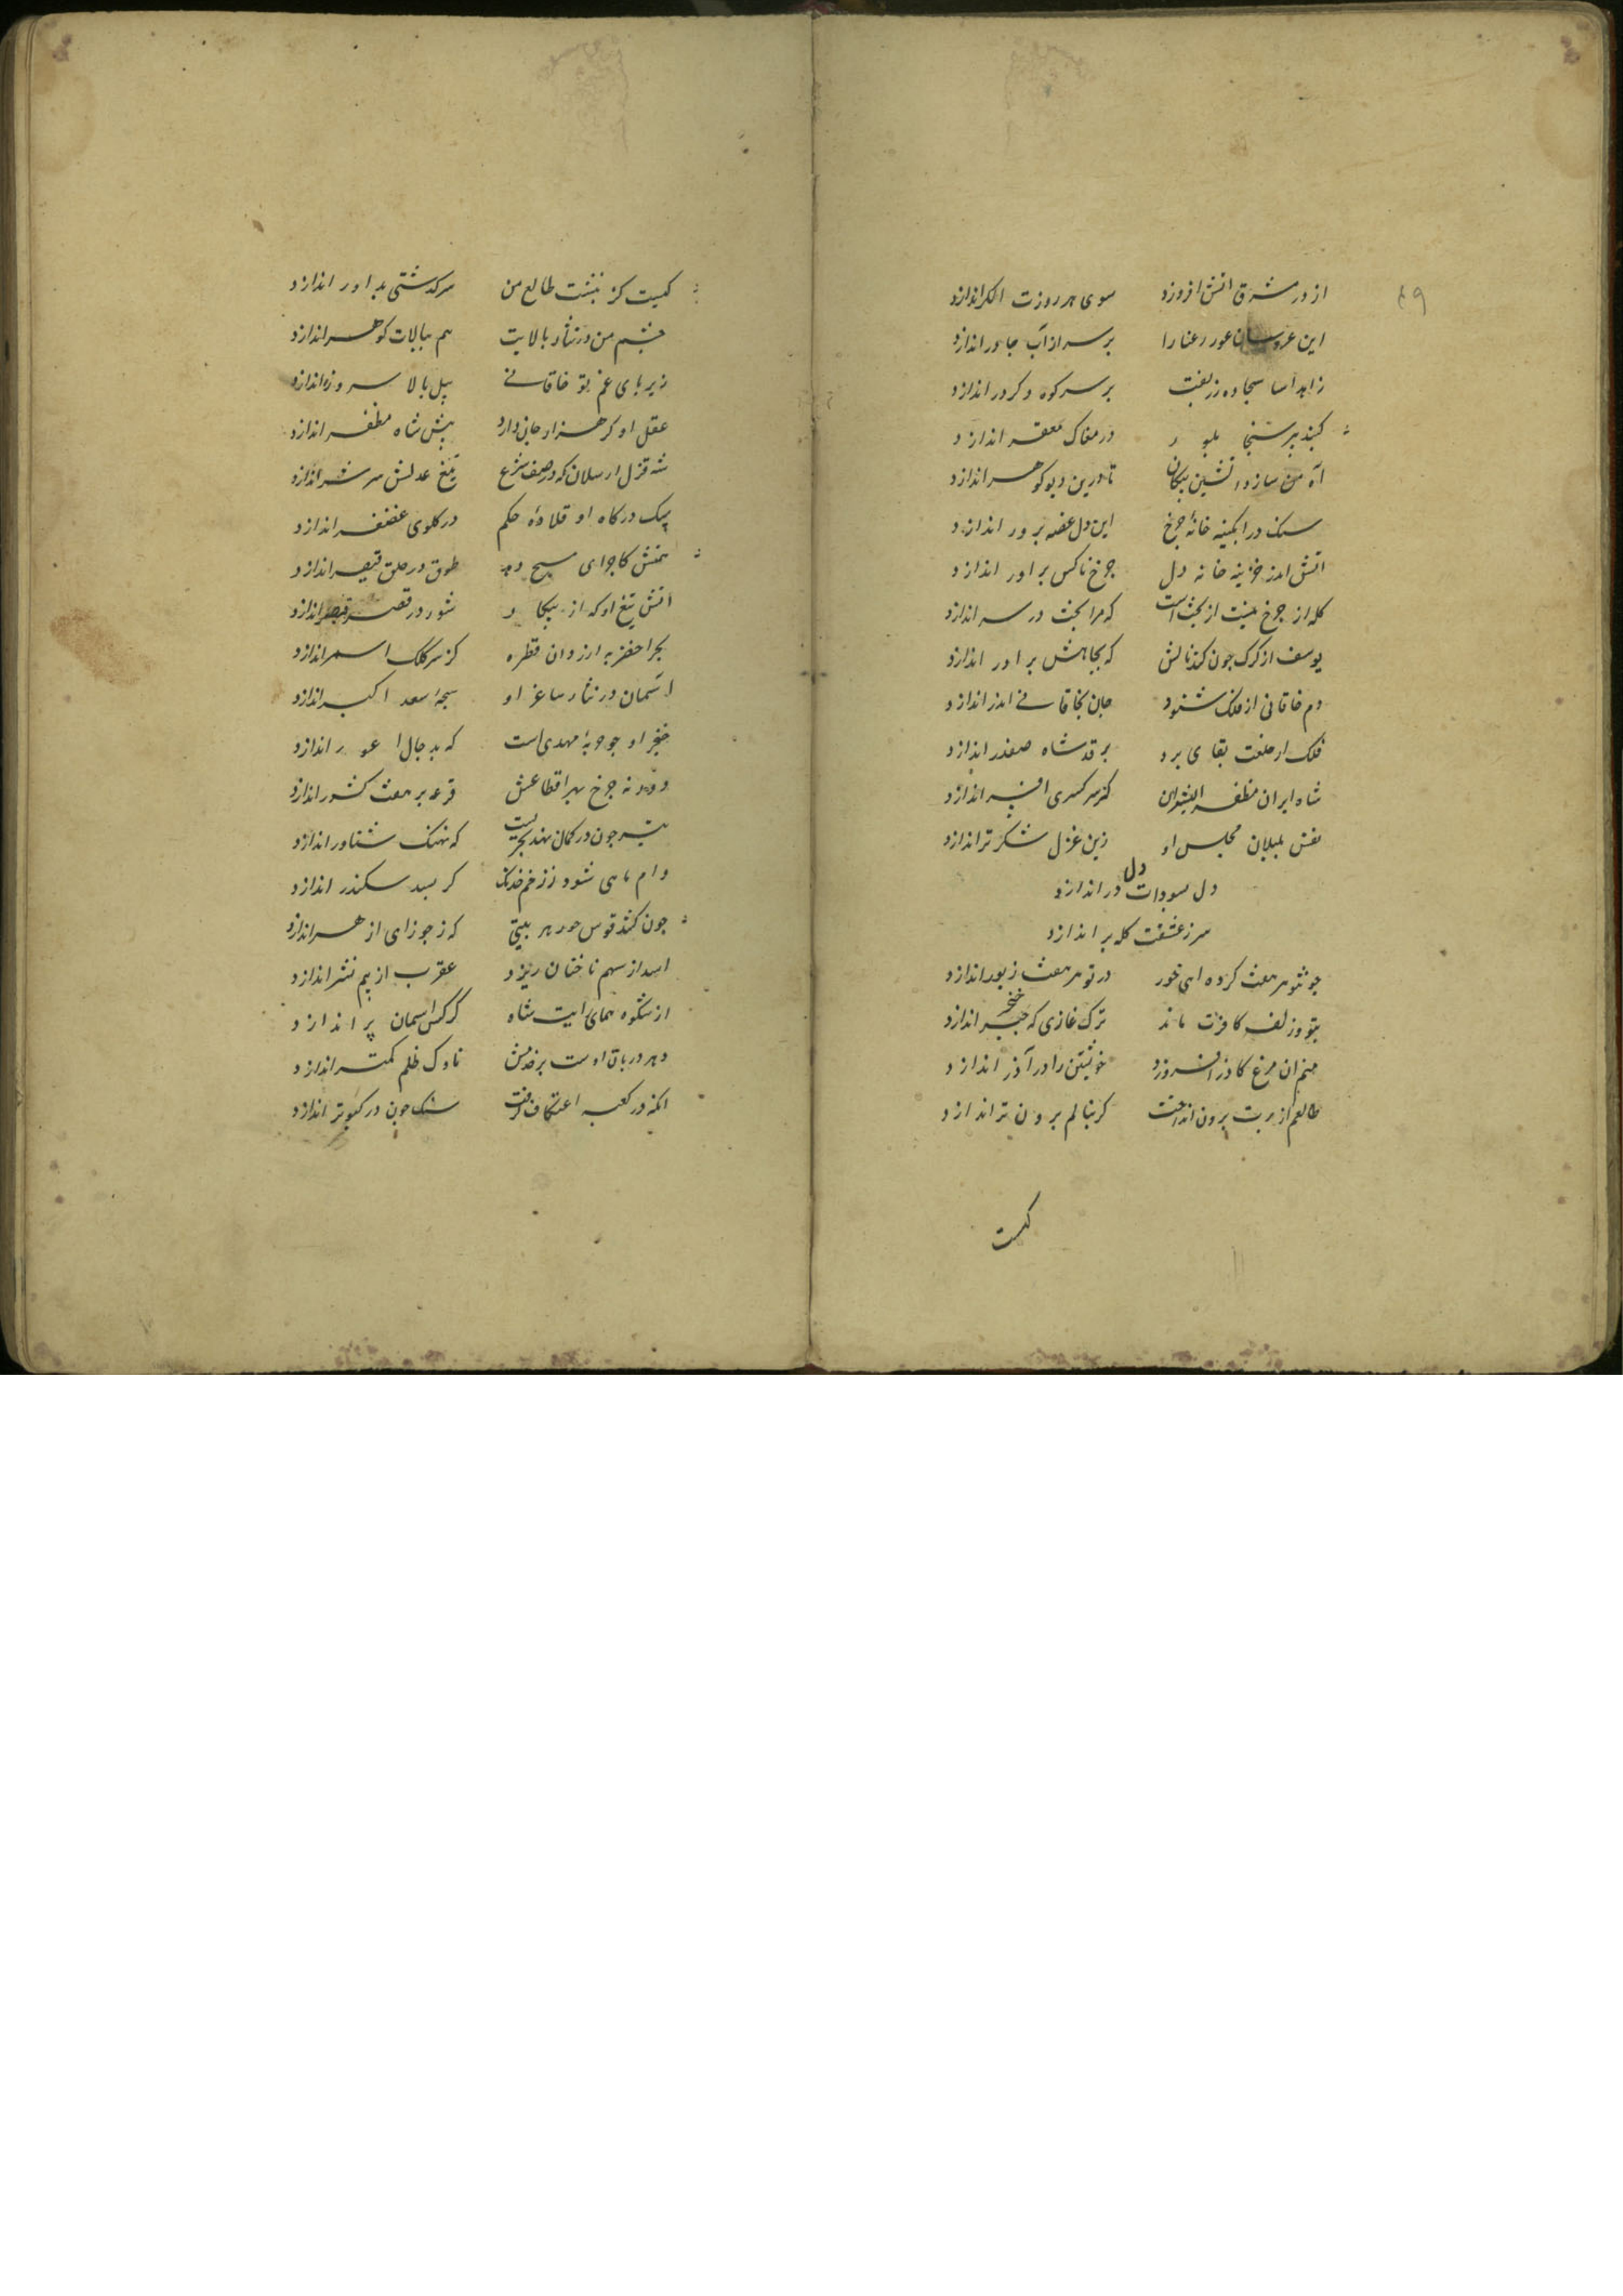 ۴۹
از در مشرق اتش افروزد سوی هر روزت اندازد
این عروسان عور رعنا را بر سر از آب جادر اندازد
زاهد اسا سجاده زربفت بر سر کوه و کردر اندازد
کنبد بیر در مغاک مقعر اندازد
آه من سازد اتشین بیکان تا درین دیو کوهر اندازد
سنک در ابکینه خانه جرخ این دل غصه برور اندازد
اتش اندر خزینه خانه دل جرخ ناکس بر اور اندازد
کله از جرخ نیست از بخت است که مرا بخت در سر اندازد
یوسف از کرک جون کند نالش که بجاهش براور اندازد
دم خاقانی از فلک شنود جان بخاقانی اندر اندازد
فلک از خلعت بقا ی برد بر قد شاه صفدر اندازد
شاه ایران مظفر الدین ان کز سر کسری افسر اندازد
نفس بلبلان مجلس او زین غزل شکر تر اندازد
دل
دل بسودات در اندازد
سر ز عشقت کله بر اندازد
جو بتو بر هفت کرده اهی خور در تو هر هفت زیور اندازد
بتو و زلف کافرت ماند ترک غازی که خنجر اندازد
خنجر
منم ان مرغ کاذر افروزد خویشتن را در آذر اندازد
طالعم از برت برون انداخت کر بنالم برون تر اندازد
کیست
کیست کز نبشت طالع من سرکذشتی بداور اندازد
جشم من در نثار بالایت هم ببالات کوهر اندازد
زیر بای غم تو خاقانی بیل بالا سر و زر اندازد
عقل او کر هزار جان دارد بیش شاه مظفر اندازد
شه قزل ارسلان که در صف شرع تیغ عدلش سر شر اندازد
سک درکاه او قلاده حکم در کلوی غضنفر اندازد
همتش کاجرای مسیح دهد طوق در حلق قیصر اندازد
اتش تیغ او که از بیکار شور در قصر قیصر اندازد
بحر اخضر به ارزد ان قطره کز سر کلک اسمر اندازد
اسمان در نثار ساغر او سبحه سعد اکبر اندازد
خنجر او جو حربه مهدی است که بدجال اعور اندازد
دور نه جرخ بهر اقطاعش قرعه بر هفت کشور اندازد
تیر جون در کمان نهد بحریست که نهنک شناور اندازد
دام ماهی شود ز زخم خدنک کر بسد سکندر اندازد
جون کند قوس خود هر بیتی که ز جوزای ازهر اندازد
اسد از سهم ناخنان ریزد عقرب از بیم نشتر اندازد
از شکوه همای رایت شاه کرکس اسمان پر اندازد
دهر دربان اوست بر خدمش ناوک ظلم کمتر اندازد
انکه در کعبه اعتکاف کرفت سنک جون در کبوتر اندازد